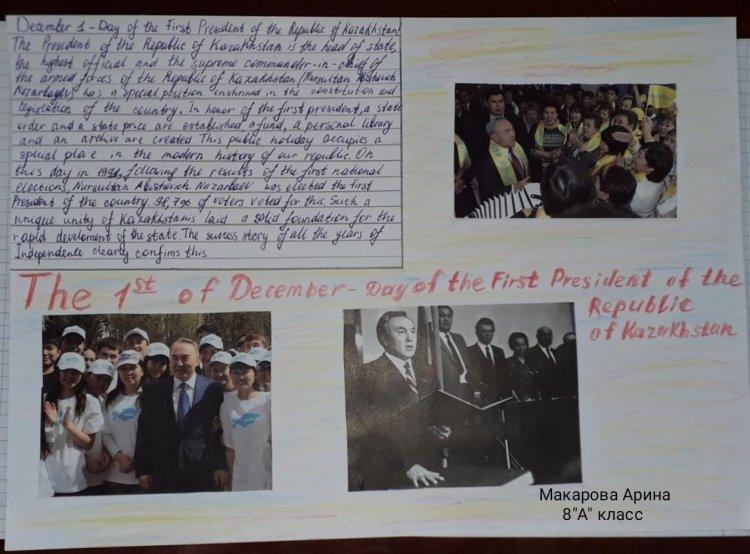 December 1 - Day of the First President of the Republic of Kazakhstan!
The President of the Republic of Kazakhstan is the head of state,
the highest official and the supreme commander-in-chief of
the armed forces of the Republic of Kazakhstan (Nursultan Abishevich
Nazarbayev) has a special position enshrined in the constitution and
legislation of the country. In honor of the first president, a state
order and a state prize are established a fund, a personal library
and an archive are created This public holiday occupies a
special place in the modern history of our republic. On
this day in 1991, following the results of the first national
elections, Nursultan Abishevich Nazarbaev was elected the first
President of the country 98,7% of voters voted for this. Such a
unique unity of Kazakhstanis laid a solid foundation for the
rapid develoment of the state. The success story of all the years of
Independence clearly confims this.
The 1st of December - Day of the First President of the
Republic
of Kazakhstan
Макарова Арина
8"А" класс